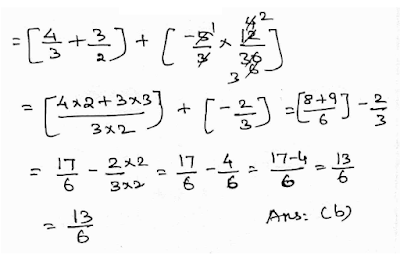 = [4/3 + 3/2] + [-3̶ ¹/3̶ × 1̶2̶ 4̶ 2/3̶6̶ 6̶ 3]
= [4×2+3×3/3×2] + [-2/3] = [8+9/6] - 2/3
= 17/6 - 2×2/3×2 = 17/6 - 4/6 = 17-4/6 = 13/6
= 13/6 Ans: (b)